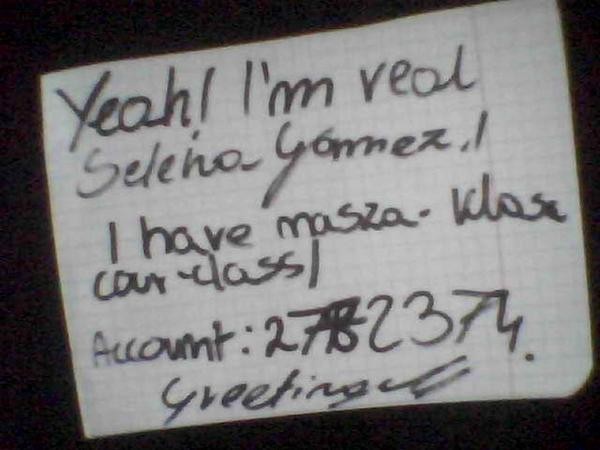 Yeah! I'm real
Selena Gomez.!
I have nasza-klasa
(our-class)
Account: 2782374.
Greetings